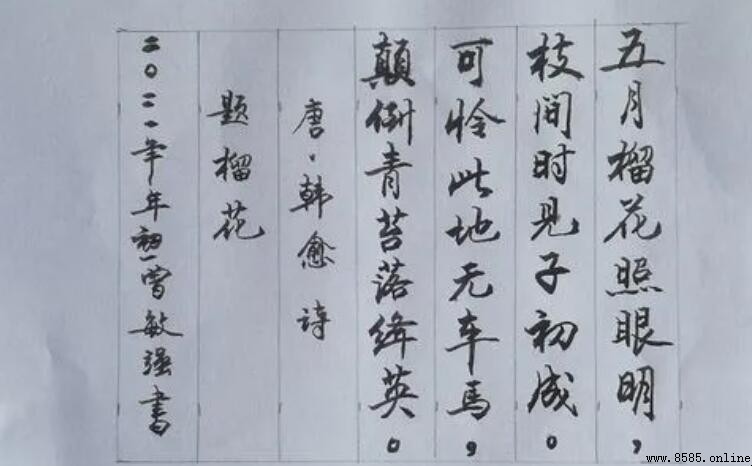 五月榴花照眼明，
枝间时见子初成。
可怜此地无车马，
颠倒青苔落绛英。
唐·韩愈诗
题榴花
二〇二一年年初一曾敏强书
www.8585.online